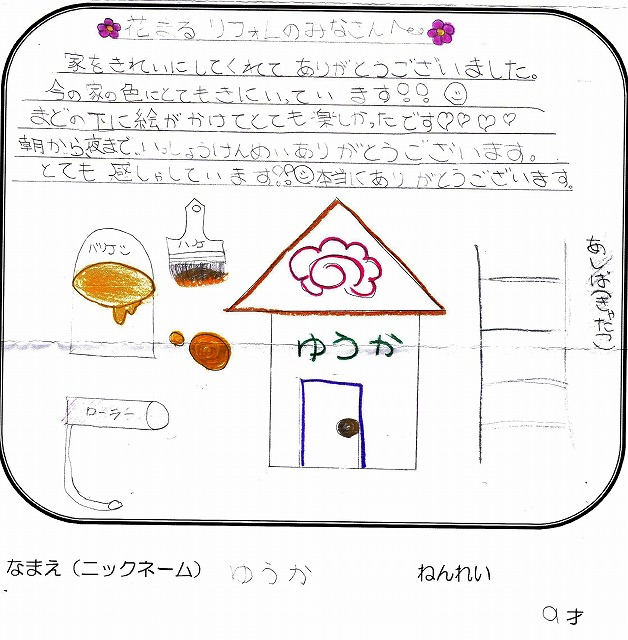 花まるリフォームのみなさんへ
家をきれいにしてくれてありがとうございました。
今の家の色にとてもきにいっています♡♡☺
まどの下に絵がかけてとても楽しかったです♡♡♡♡
朝から夜まで、いっしょうけんめいありがとうございます。
とても感しゃしています!!☺本当にありがとうございます。
バケツ
ハケ
あしば(きゃたつ)
ゆうか
ローラー
なまえ(ニックネーム) ゆうか
ねんれい
9才